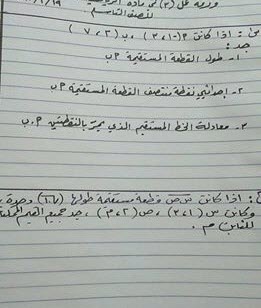 ورقة عمل (٣) في مادة
للصف التاسع
س١: اذا كانت P(-٢،١) ، ب(٧،٢)
جد:
١- طول القطعة المستقيمة P ب
٢- احداثيي نقطة منتصف القطعة المستقيمة P ب
٣- معادلة الخط المستقيم الذي يمر بالنقطتين P ، ب
: اذا كانت س ص قطعة مستقيمة طولها وحدة
وكانت س (٣،١) ، ص (٢،م) ، جد جميع القيم الممكنة
للثابت م .